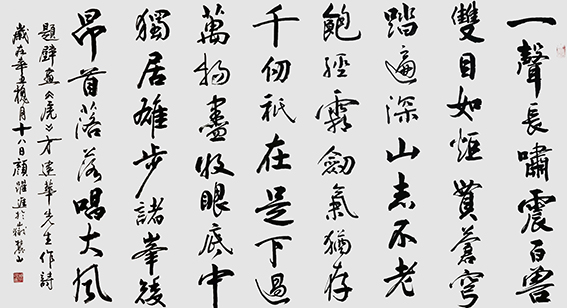 一聲長嘯震百
雙目如炬貫蒼穹
踏遍深山志不老
飽經霜劍氣猶存
千仞祇在足下過
萬物盡收眼底中
獨居雄步諸峯
昂首落落唱大風
題壁畫《虎》方建華先生作詩
歲在辛丑槐月十八日顏躍進於嶽麓山